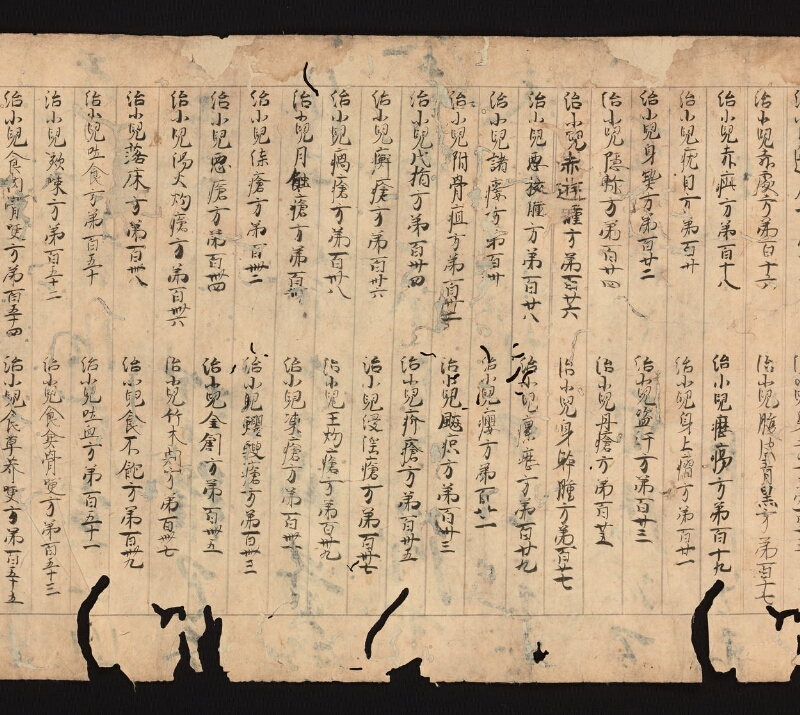 治小兒赤處方第百十六
治小兒腹皮青黑方第百十七
治小兒赤疵方第百十八
治小兒癧瘍方第百十九
治小兒疣目方第百廿
治小兒身上癰方第百廿一
治小兒身方第百廿二
治小兒盜汗方第百廿三
治小兒隱軫方第百廿四
治小兒丹瘡方第百廿五
治小兒赤遊腫方第百廿六
治小兒身體腫方第百廿七
治小兒惡核腫方第百廿八
治小兒瘰癧方第百廿九
治小兒諸瘻方第百卅
治小兒癭方第百卅一
治小兒附骨疽方第百卅二
治小兒瘭疽方第百卅三
治小兒代指方第百卅四
治小兒疥瘡方第百卅五
治小兒癬瘡方第百卅六
治小兒浸淫瘡方第百卅七
治小兒瘑瘡方第百卅八
治小兒王灼瘡方第百卅九
治小兒月蝕瘡方第百卌
治小兒凍瘡方第百卌一
治小兒漆瘡方第百卌二
治小兒蠼螋瘡方第百卌三
治小兒惡瘡方第百卌四
治小兒金創方第百卌五
治小兒湯火灼瘡方第百卌六
治小兒竹木刺方第百卌七
治小兒落床方第百卌八
治小兒食不飽方第百卌九
治小兒吐食方第百五十
治小兒吐血方第百五十一
治小兒欬嗽方第百五十二
治小兒食魚骨哽方第百五十三
治小兒食肉骨哽方第百五十四
治小兒食草芥哽方第百五十五